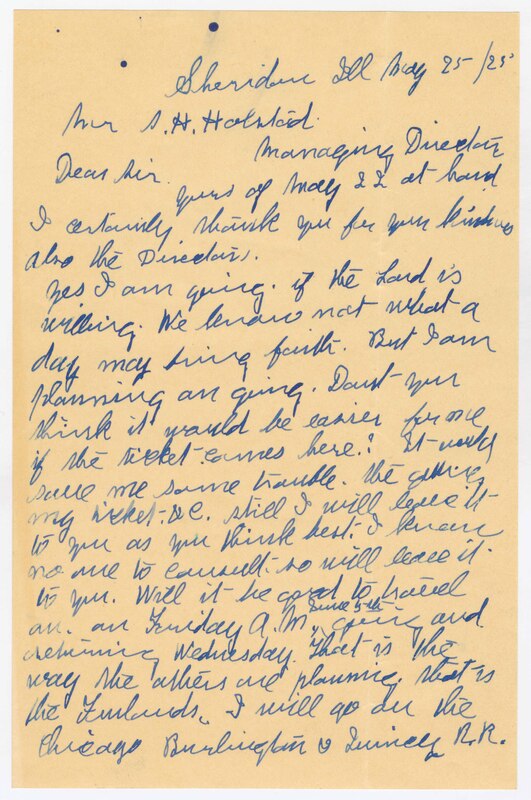 Sheridan Ill May 25/25
Mr S. H. Holstad.
Managing Director
Dear Sir.
yours of May 22 at hand
I certainly thank you for your kindness
also the Directors.
yes I am going. if the Lord is
willing. We know not what a
day may bring forth. But I am
planning on going. Dont you
think it would be easier for me
if the ticket comes here.? It would
save me some trouble. the getting
my ticket. &c. still I will leave it
to you as you think best. I know
no one to consult. so will leave it.
to you. Will it be good to travel
on. on Friday A.M. June 5th going and
returning Wednesday. That is the
way the others are planning. that is
the Furlands. I will go on the
Chicago Burlington & Quincy R.R.